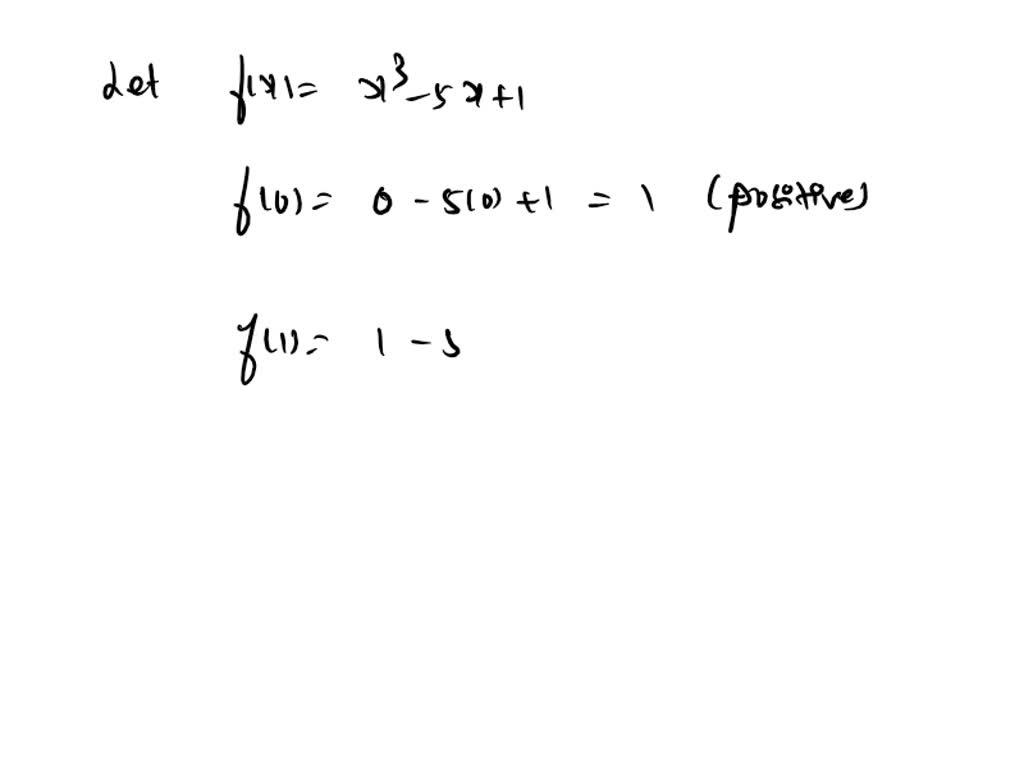 Let f(x) = x³ - 5x + 1
f(0) = 0 - 5(0) + 1 = 1 (positive)
f(1) = 1 - 5